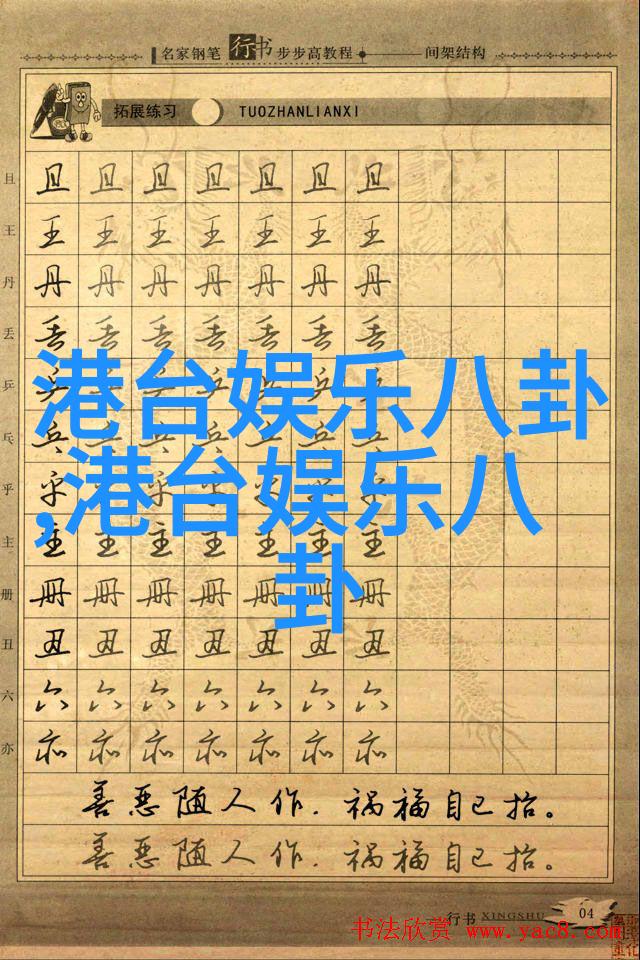 名家钢笔行书步步高教程 间架结构
拓展练习 TUOZHANLIANXI
且 且 且 且 且 且 且 且
王 王 王 王 王 王 王 王
丹 丹 丹 丹 丹 丹 丹 丹
丢 丢 丢 丢 丢 丢 丢 丢
港台娱乐八卦
乒 乒 乒 乒 乒 乒
乓 乓 乓 乓 乓 乓
,港台娱乐八
乎 乎 乎 乎
主 主 主 主 主 主 主 主
卦
册 册 册 册 册 册 册 册
丑 丑 丑 丑 丑 丑 丑 丑
六 六 六 六 六 六 六 六
亦 亦 亦 亦 亦 亦 亦 亦
善恶随人作.祸福自己招。
善恶随人作.祸福自己招。
行书 XINGSHU 04
书法欣赏 www.yac8.com